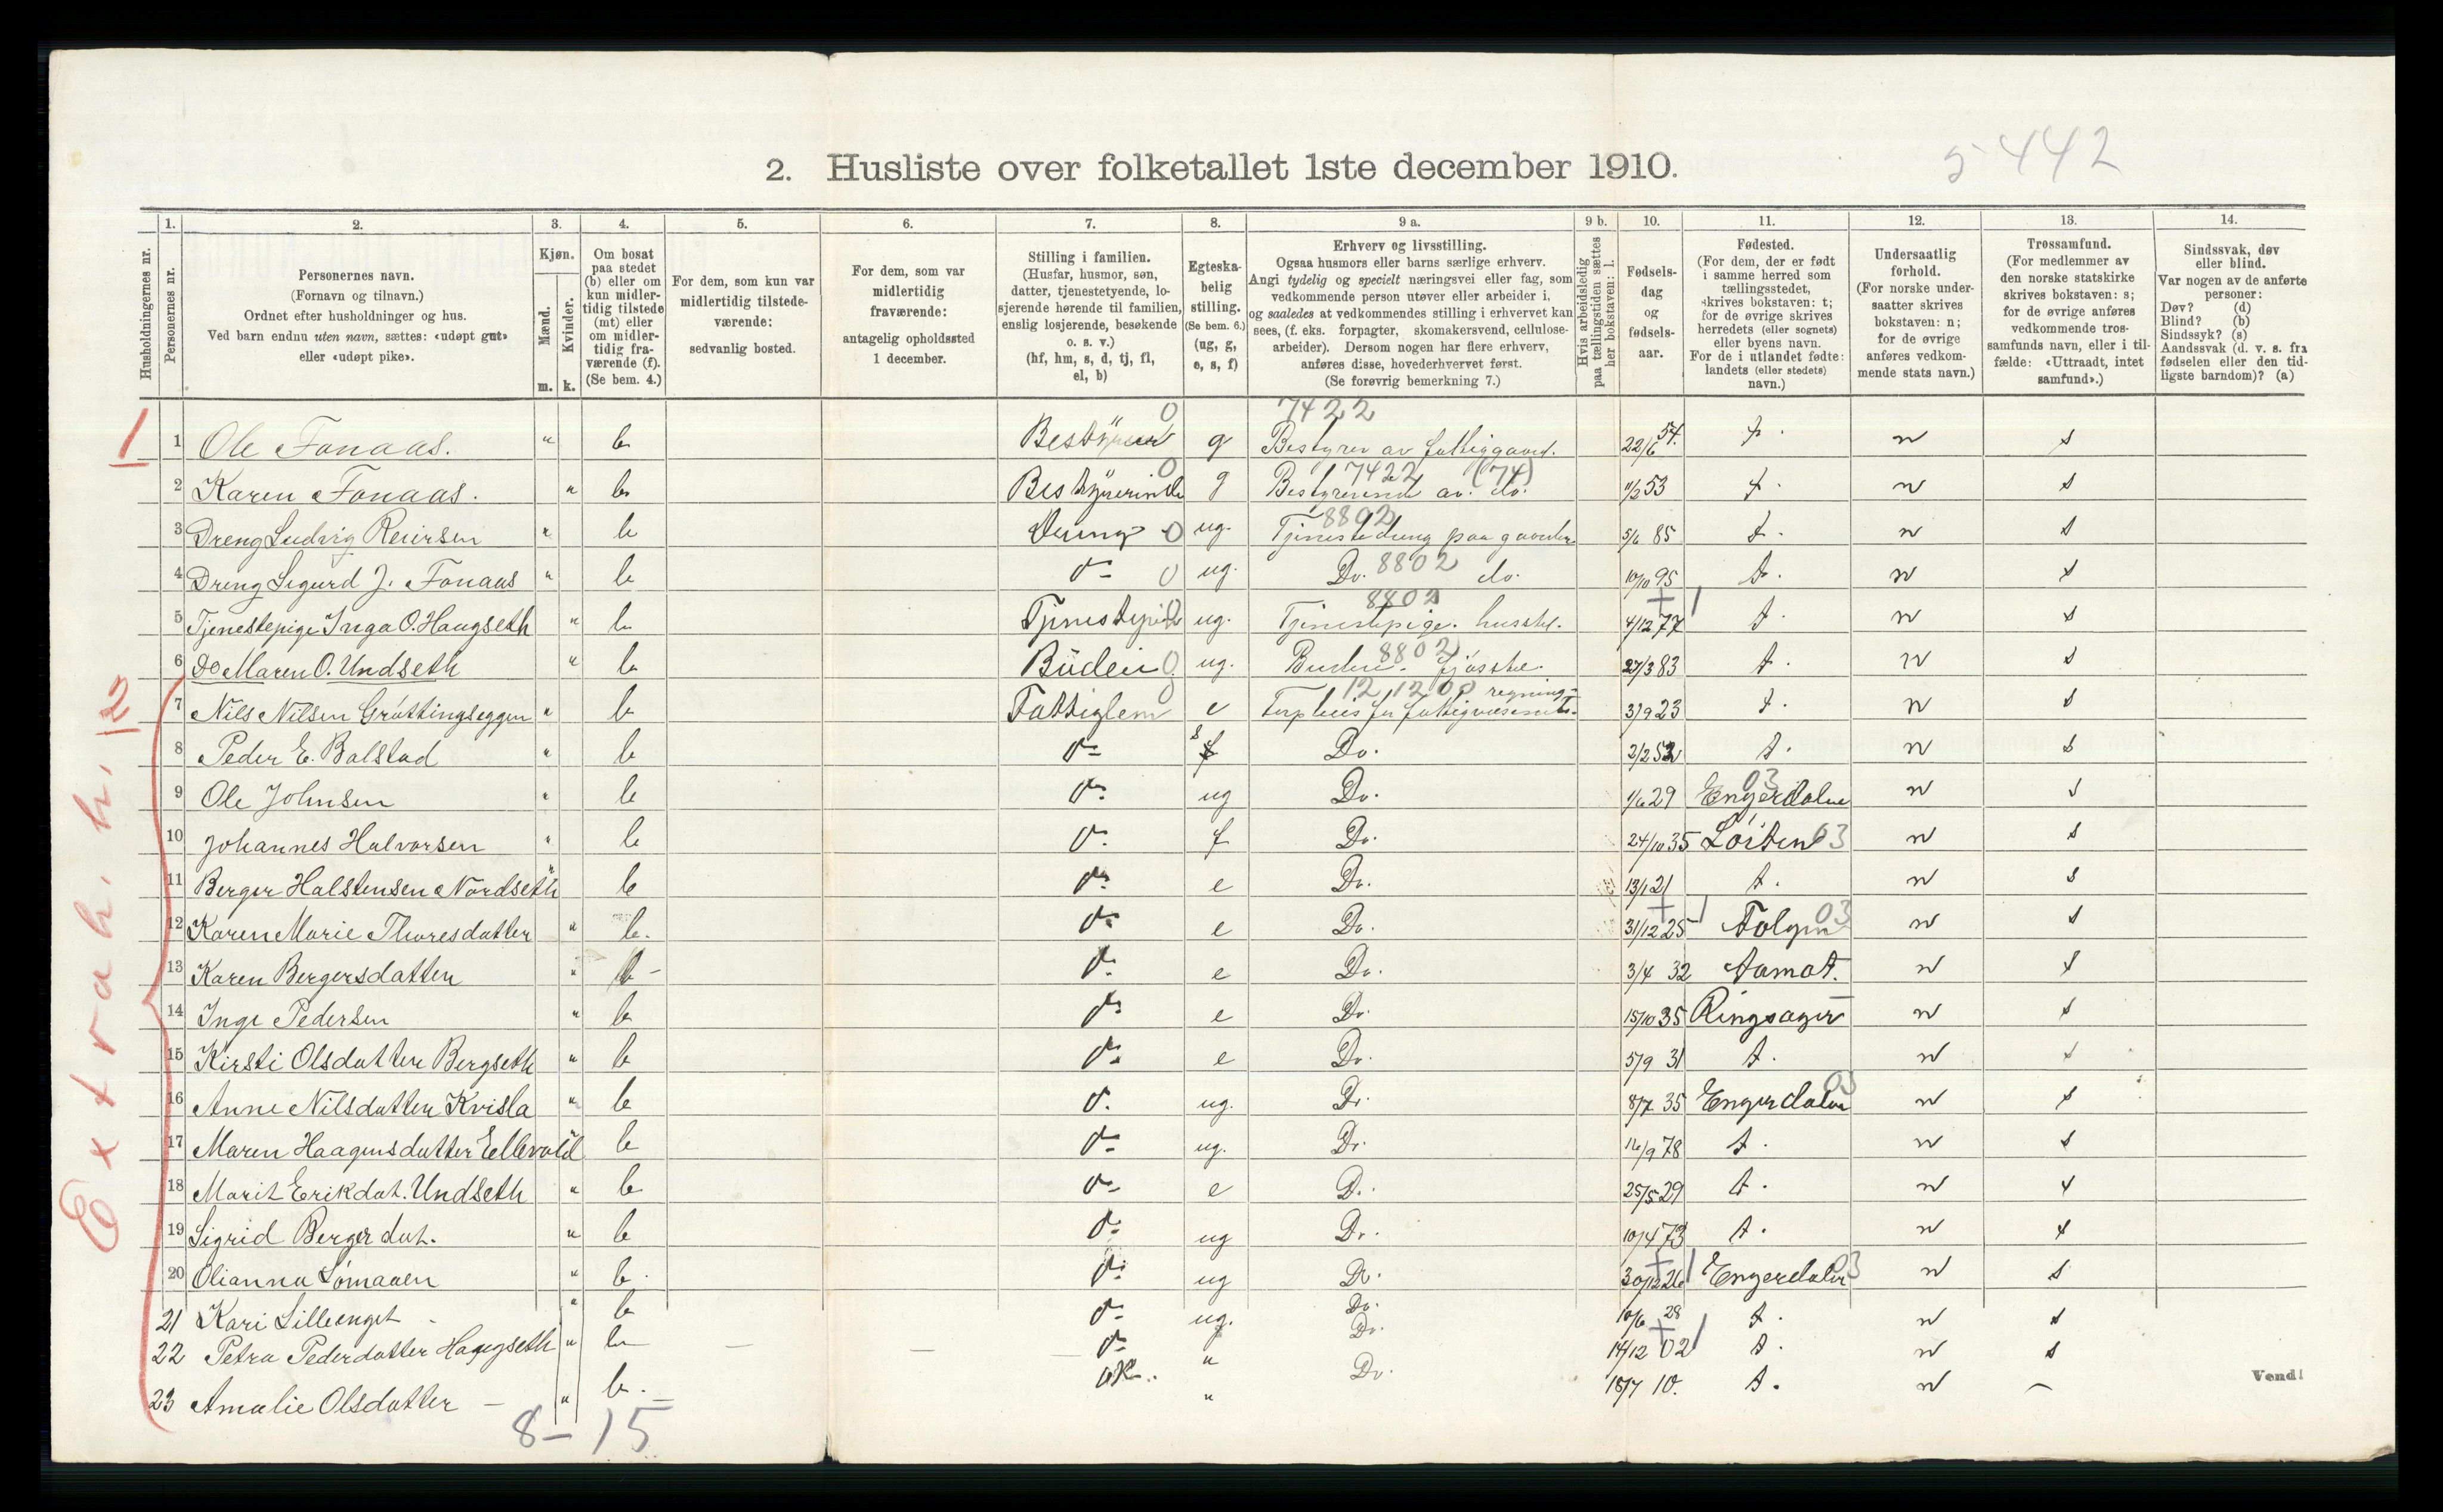 5442
2. Husliste over folketallet 1ste december 1910.
1. 2. 3. 4. 5. 6. 7. 8. 9 a. 9 b. 10. 11. 12. 13. 14.
Husholdningernes nr.
Personernes nr.
Personernes navn.
(Fornavn og tilnavn.)
Ordnet efter husholdninger og hus.
Ved barn endnu uten navn, sættes: «udøpt gut»
eller «udøpt pike».
Kjøn.
Mænd.
Kvinder.
m. k.
Om bosat
paa stedet
(b) eller om
kun midler-
tidig tilstede
(mt) eller
om midler-
tidig fra-
værende (f).
(Se bem. 4.)
For dem, som kun var
midlertidig tilstede-
værende:
sedvanlig bosted.
For dem, som var
midlertidig
fraværende:
antagelig opholdssted
1 december.
Stilling i familien.
(Husfar, husmor, søn,
datter, tjenestetyende, lo-
sjerende hørende til familien,
enslig losjerende, besøkende
o. s. v.)
(hf, hm, s, d, tj, fl,
el, b)
Egteska-
belig
stilling.
(Se bem. 6.)
(ug, g,
e, s, f)
Erhverv og livsstilling.
Ogsaa husmors eller barns særlige erhverv.
Angi tydelig og specielt næringsvei eller fag, som
vedkommende person utøver eller arbeider i,
og saaledes at vedkommendes stilling i erhvervet kan
sees, (f. eks. forpagter, skomakersvend, cellulose-
arbeider). Dersom nogen har flere erhverv,
anføres disse, hovederhvervet først.
(Se forøvrig bemerkning 7.)
Hvis arbeidsledig
paa tællingstiden sættes
her bokstaven: l.
Fødsels-
dag
og
fødsels-
aar.
Fødested.
(For dem, der er født
i samme herred som
tællingsstedet,
skrives bokstaven: t;
for de øvrige skrives
herredets (eller sognets)
eller byens navn.
For de i utlandet fødte:
landets (eller stedets)
navn.)
Undersaatlig
forhold.
(For norske under-
saatter skrives
bokstaven: n;
for de øvrige
anføres vedkom-
mende stats navn.)
Trossamfund.
(For medlemmer av
den norske statskirke
skrives bokstaven: s;
for de øvrige anføres
vedkommende tros-
samfunds navn, eller i til-
fælde: «Uttraadt, intet
samfund».)
Sindssvak, døv
eller blind.
Var nogen av de anførte
personer:
Døv? (d)
Blind? (b)
Sindssyk? (s)
Aandssvak (d. v. s. fra
fødselen eller den tid-
ligste barndom)? (a)
0 7422
1 1 Ole Fonaas. " b g Bestyrer av fattiggaard. 22/6 54. t. n s
0 7422 (74)
2 Karen Fonaas. " b Bestyrerinde g Bestyrerinde av do. 11/2 53 t. n s
8802
3 Dreng Ludvig Reiersen " b Dreng 0 ug. Tjenestedreng paa gaarden 5/6 85 t. n s
4 Dreng Sigurd J. Fonaas " b do 0 ug. Do. 8802 do. 10/10 95 t. n s
8802
5 Tjenestepige Inga O. Haugseth " b Tjenestepige 0 ug. Tjenestepige. husstel. 4/12 77 t. n s
6 Do Maren O. Undseth " b Budeie 0 ug. Budeie 8802 fjøsstel. 27/3 83 t. n s
12,1200
7 Nils Nilsen Grøttingseggen " b Fattiglem e Forpleies for fattigvæsenets regning 3/9 23 t. n s
8 Peder E. Bolstad " b do s Do. 2/2 52 t. n s
9 Ole Johnsen " b do ug Do. 1/6 29 Engerdalen 03 n s
10 Johannes Halvorsen " b do f Do. 24/10 35 Løiten 03 n s
11 Berger Halstensen Nordseth " b do e Do. 13/1 21 t. n s
12 Karen Marie Thoresdatter " b. do e Do. 31/12 25 Tolgen 03 n s
13 Karen Bergersdatter " b do e Do. 3/4 32 Aamot. n s
14 Inge Pedersen " b do e Do. 15/10 35 Ringsager n s
15 Kirsti Olsdatter Bergseth " b do e Do. 5/9 31 t. n s
16 Anne Nilsdatter Kvisla " b do ug. Do. 8/7 35 Engerdalen 03 n s
17 Maren Haagensdatter Ellevold " b do ug. Do. 16/9 78 t. n s
18 Marit Erikdat. Undseth " b do e Do. 25/5 29 t. n s
19 Sigrid Bergerdat. " b do ug Do. 10/4 73 t. n s
20 Olianna Sømaaen " b. do ug Do. 30/12 26 Engerdalen 03 n s
21 Kari Lilleenget " b do ug. Do. 10/6 28 t. n s
22 Petra Pederdatter Haugseth " b do " Do. 14/12 02 t. n s
23 Amalie Olsdatter " b. " Do. 18/7 10. t. n –
Vend!
8 – 15
Extrah. h. 12